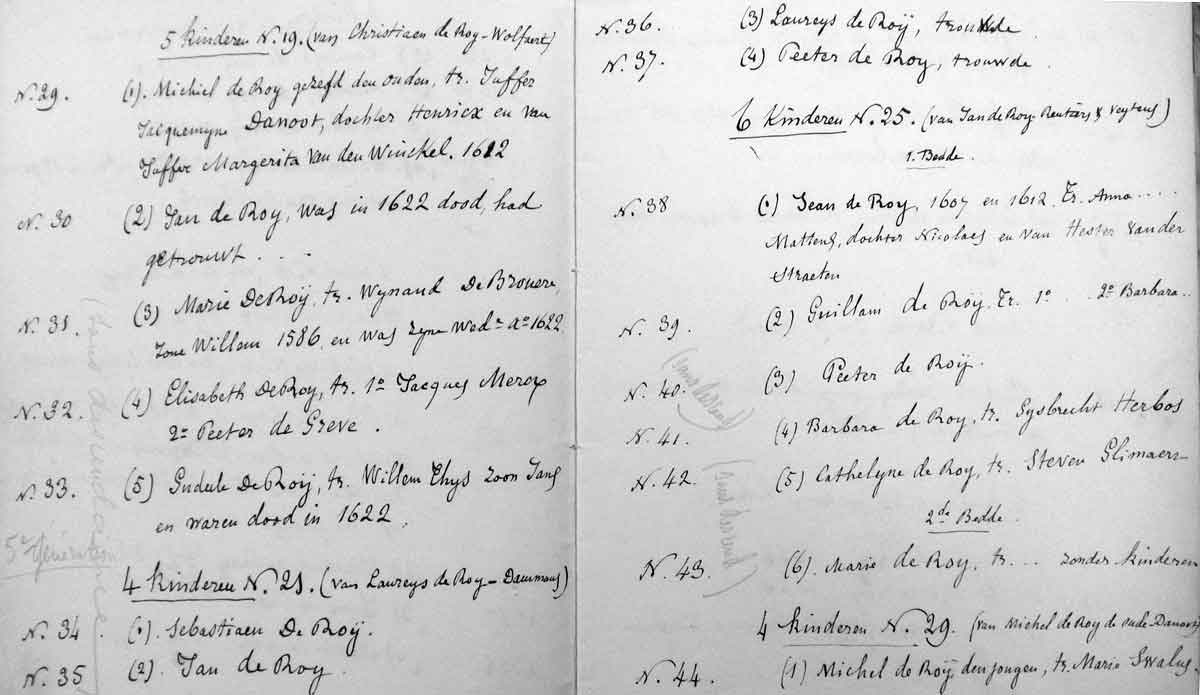 5 kinderen N. 19. (van Christiaen de Roy-Wolfaert)
N. 29. (1). Michiel de Roy gezegd den ouden, tr. Juffer
Jacquemyne Danoot, dochter Henricx en van
Juffer Margerita van den Winckel. 1612
N. 30 (2) Jan de Roy, was in 1622 dood, had
getrouwt . . .
N. 31. (3) Marie De Roÿ, tr. Wynand De Brouere,
zone Willem 1586, en was zyne Wede Ao 1622.
N. 32. (4) Elisabeth De Roy, tr. 1o Jacques Merox
2o Peeter de Greve.
N. 33. (5) Gudule De Roÿ, tr. Willem Thys zoon Jans
en waren dood in 1622.
5e Génération
4 kinderen N. 21. (van Laureys de Roy-Dammans)
N. 34 (1). Sebastiaen De Roÿ.
N. 35 (2). Jan de Roy
N. 36. (3) Laureys de Roÿ, trouwde
N. 37. (4) Peeter de Roy, trouwde.
6 kinderen N. 25. (van Jan de Roy-Reutiers & Veytens)
1. Bedde.
N. 38 (1) Jean de Roy, 1607 en 1612, Tr. Anna ....
Mattens, dochter Nicolaes en van Hester Vander
Straeten
N. 39. (2) Guillam de Roÿ, Tr. 1o . . 2o Barbara ..
N. 40. (3) Peeter de Roÿ.
N. 41. (4) Barbara de Roy, tr. Gysbrecht Herbos
N. 42. (5) Cathelyne de Roy, tr. Steven Glimaers
2de Bedde.
N. 43. (6). Marie de Roy, tr. ... zonder kinderen
4 kinderen N. 29. (van Michel de Roy de oude Danoot)
N. 44. (1) Michel de Roÿ den jongen, tr. Marie Swalus.